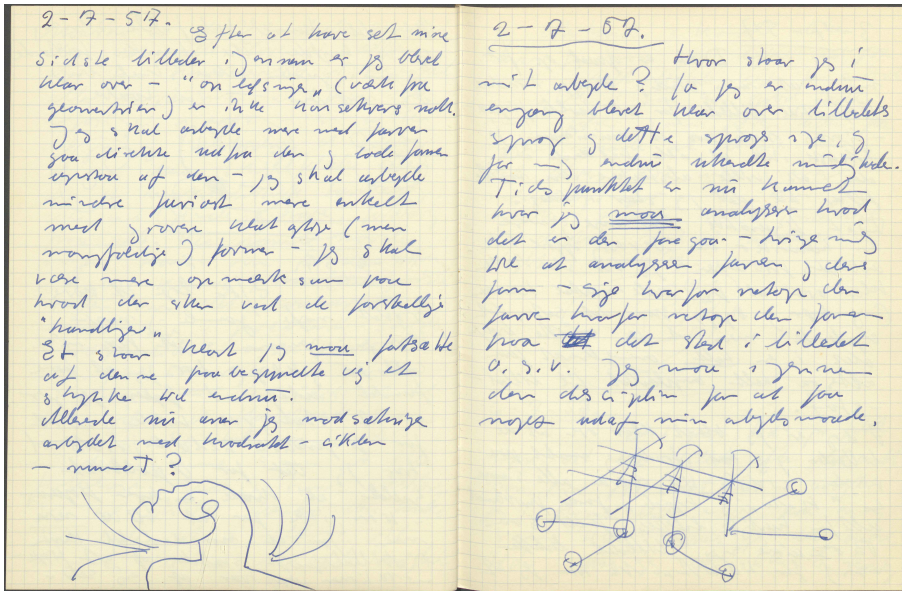 2-7-57.
Efter at have set mine
sidste billeder igennem er jeg blevet
klar over - "opløsningen" (væk fra
geometrien) er ikke konsekvens nok.
Jeg skal arbejde mere med farven
gaa direkte ud fra den og lade formen
opstaa af den - jeg skal arbejde
mindre furiøst mere enkelt
med grovere klat agtige (men
mangfoldige) former - jeg skal
være mere opmærksom paa
hvad der sker ved de forskellige
"handlinger"
Et staar klart jeg maa fortsætte
af denne paabegyndte vej et
stykke tid endnu.
Allerede nu aner jeg modsætninge
arbejdet med kvadrat - cirklen
- rummet?
2-7-57.
Hvor staar jeg i
mit arbejde? Ja jeg er endnu
engang blevet klar over billedets
sprog og dette sprogs egne, og
for mig endnu ukendte muligheder.
Tidspunktet er nu kommet
hvor jeg maa analysere hvad
det er der foregaar - tvinge mig
til at analysere farven og dens
form - sige hvorfor netop den
farve hvorfor netop den formen
paa det sted i billedet
o.s.v. Jeg maa igennem
den disciplin for at faa
noget ud af min arbejdsmaade.